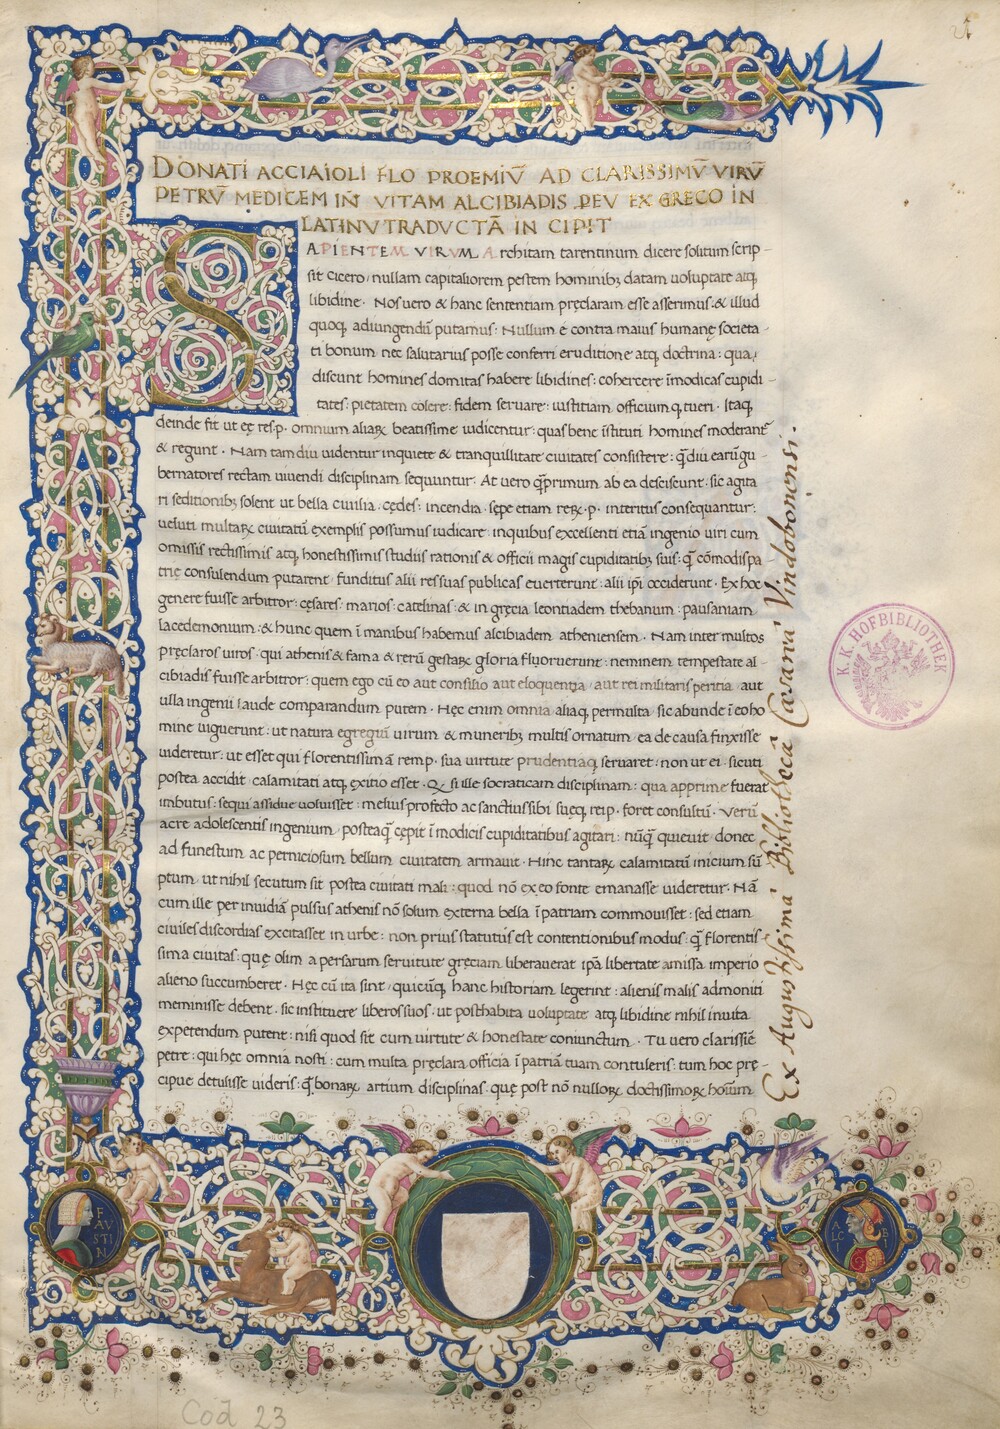 DONATI ACCIAIOLI FLO PROEMIŪ AD CLARISSIMŪ VIRŪ
PETRŪ MEDICEM IN VITAM ALCIBIADIS PEV EX GRECO IN
LATINV TRADVCTĀ IN CIPIT
SAPIENTEM VIRVM Architam tarentinum dicere solitum scrip-
sit cicero: nullam capitaliorem pestem hominibꝫ datam uoluptate atqꝫ
libidine · Nos uero & hanc sententiam pręclaram esse asserimus: & illud
quoqꝫ adiungendū putamus: Nullum e contra maius humanę societa-
ti bonum nec salutarius posse conferri eruditione atqꝫ doctrina: qua
discunt homines domitas habere libidines: cohercere īmodicas cupidi-
tates: pietatem colere: fidem seruare: iustitiam officiumqꝫ tueri · Itaqꝫ
deinde fit ut eę res.p. omnium aliaꝝ beatissime iudicentur: quas bene īstituti homines moderant̄
& regunt · Nam tam diu uidentur inquiete & tranquillitate ciuitates consistere: q̄diu earū gu-
bernatores rectam uiuendi disciplinam sequuntur: At uero q̄primum ab ea desciscunt: sic agita
ri seditionibꝫ solent ut bella ciuilia, cędes: incendia · sępe etiam reꝝ.p. interitus consequantur:
ueluti multaꝝ ciuitatū exemplis possumus iudicare: in quibus excellenti etiā ingenio uiri cum
omissis rectissimis atqꝫ honestissimis studiis rationis & officii magis cupiditatibꝫ suis: q̄ cōmodis pa
trię consulendum putarent: funditus alii res suas publicas euerterunt: alii ip̄i occiderunt · Ex hoc
genere fuisse arbitror: cęsares: marios: catelinas: & in gręcia leontiadem thebanum: pausaniam
lacedemonium: & hunc quem ī manibus habemus alcibiadem atheniensem · Nam inter multos
pręclaros uiros: qui athenis & fama & rerū gestaꝝ gloria floruerunt: neminem tempestate al-
cibiadis fuisse arbitror: quem ego cū eo aut consilio aut eloquentia aut rei militaris peritia aut
ulla ingenii laude comparandum putem · Hęc enim omnia aliaqꝫ permulta sic abunde ī eo ho
mine uiguerunt: ut natura egregiū uirum & muneribꝫ multis ornatum ea de causa finxisse
uideretur: ut esset qui florentissimā remp. sua uirtute prudentiaqꝫ seruaret: non ut ei sicuti
postea accidit calamitati atqꝫ exitio esset · Q̄ si ille socraticam disciplinam: qua apprime fuerat
imbutus: sequi assidue uoluisset: melius profecto ac sanctius sibi suęqꝫ reip. foret consultū · Verū
acre adolescentis ingenium posteaq̄ cępit īmodicis cupiditatibus agitari: nūq̄ quieuit donec
ad funestum ac perniciosum bellum ciuitatem armauit · Hinc tantaꝝ calamitatū inicium sū
ptum: ut nihil secutum sit postea ciuitati mali: quod nō ex eo fonte emanasse uideretur · Nā
cum ille per inuidiā pulsus athenis nō solum externa bella ī patriam commouisset: sed etiam
ciuiles discordias excitasset in urbe: non prius statutus est contentionibus modus: q̄ florentis
sima ciuitas: quę olim a persarum seruitute gręciam liberauerat ip̄a libertate amissa imperio
alieno succumberet · Hęc cū ita sint quicūqꝫ hanc historiam legerint: alienis malis admoniti
meminisse debent: sic instituere liberos suos: ut posthabita uoluptate atqꝫ libidine nihil in uita
expetendum putent: nisi quod sit cum uirtute & honestate coniunctum · Tu uero clarissīe
petre: qui hęc omnia nosti: cum multa pręclara officia ī patriā tuam contuleris: tum hoc prę-
cipue detulisse uideris: q̄ bonaꝝ artium disciplinas: quę post nō nulloꝝ doctissimoꝝ hoīum
Ex Augustissimâ Bibliothecâ Cæsareâ Vindobonensi.
K.K.HOFBIBLIOTHEK
FAVSTIN
ALCIBI
Cod 23